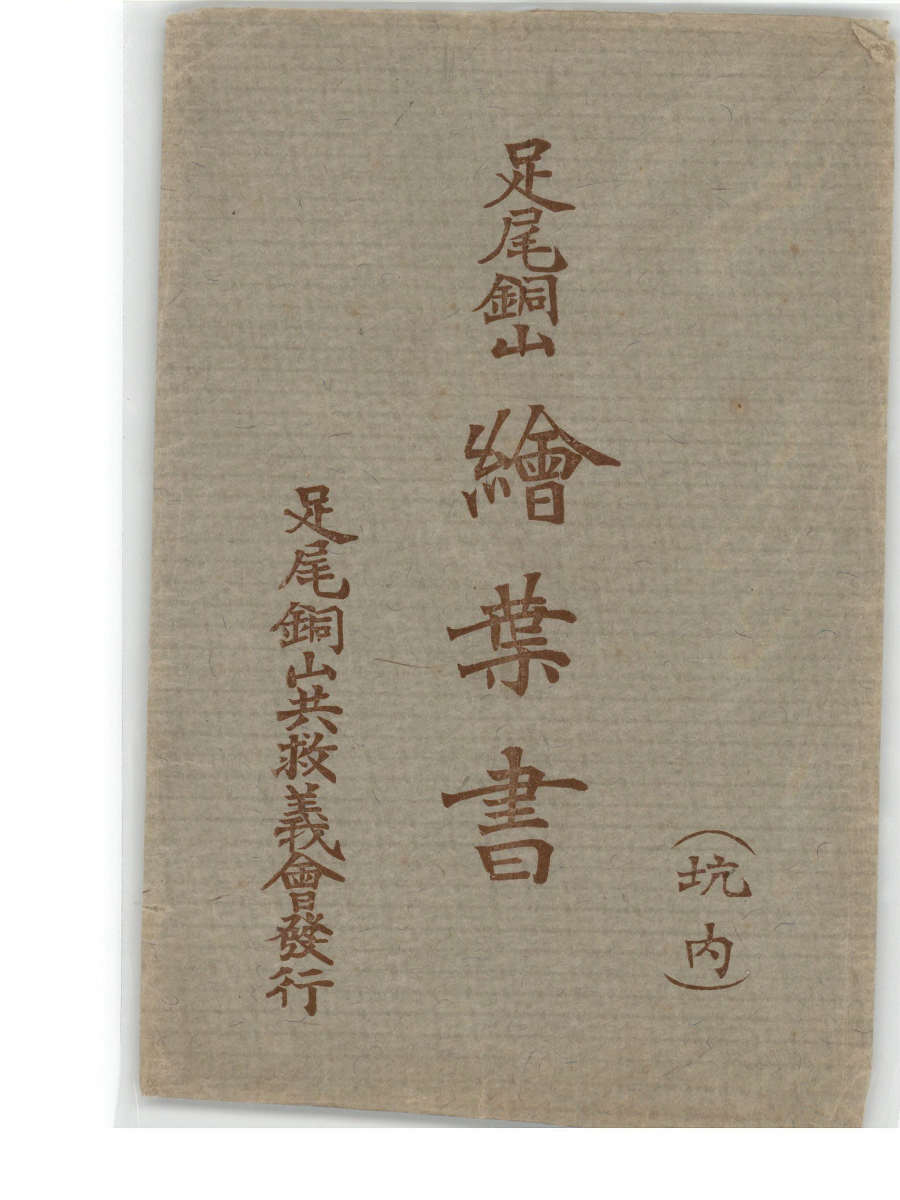 （坑内）
足尾銅山 繪葉書
足尾銅山共救義會發行